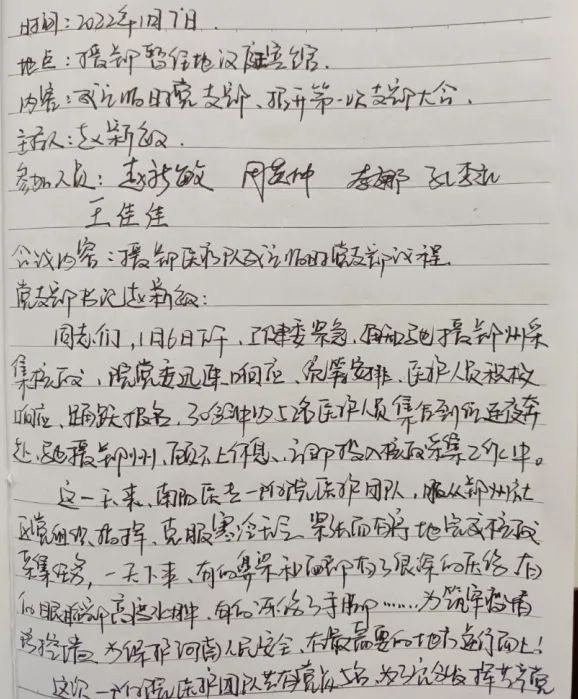 时间:2022年1月7日.
地点:援郑暂住地汉庭宾馆.
内容:成立临时党支部、召开第一次支部大会.
主持人:赵新敏.
参加人员: 赵新敏 李娜
王佳佳
会议内容:援郑医疗队成立临时党支部议程
党支部书记赵新敏:
同志们,1月6日下午,卫健委紧急通知驰援郑州采
集核酸,院党委迅速响应、统筹安排,医护人员积极
响应、踊跃报名,30分钟内52名医护人员集合到位连夜奔
赴驰援郑州,顾不上休息、立即投入核酸采集工作中。
这一天来,南阳医专一附院医护团队,服从郑州社
区党组织指挥,克服寒冷天气、紧张而有序地完成核酸
采集任务,一天下来,有的鼻梁和面部有了很深的压痕 有
的眼睑部高度水肿,有的冻伤了手脚……为筑牢疫情
防控墙 为保护河南人民安全,在最需要的地方逆行而上!
这次一附院医护团队共有党员5名,为了充分发挥共产党